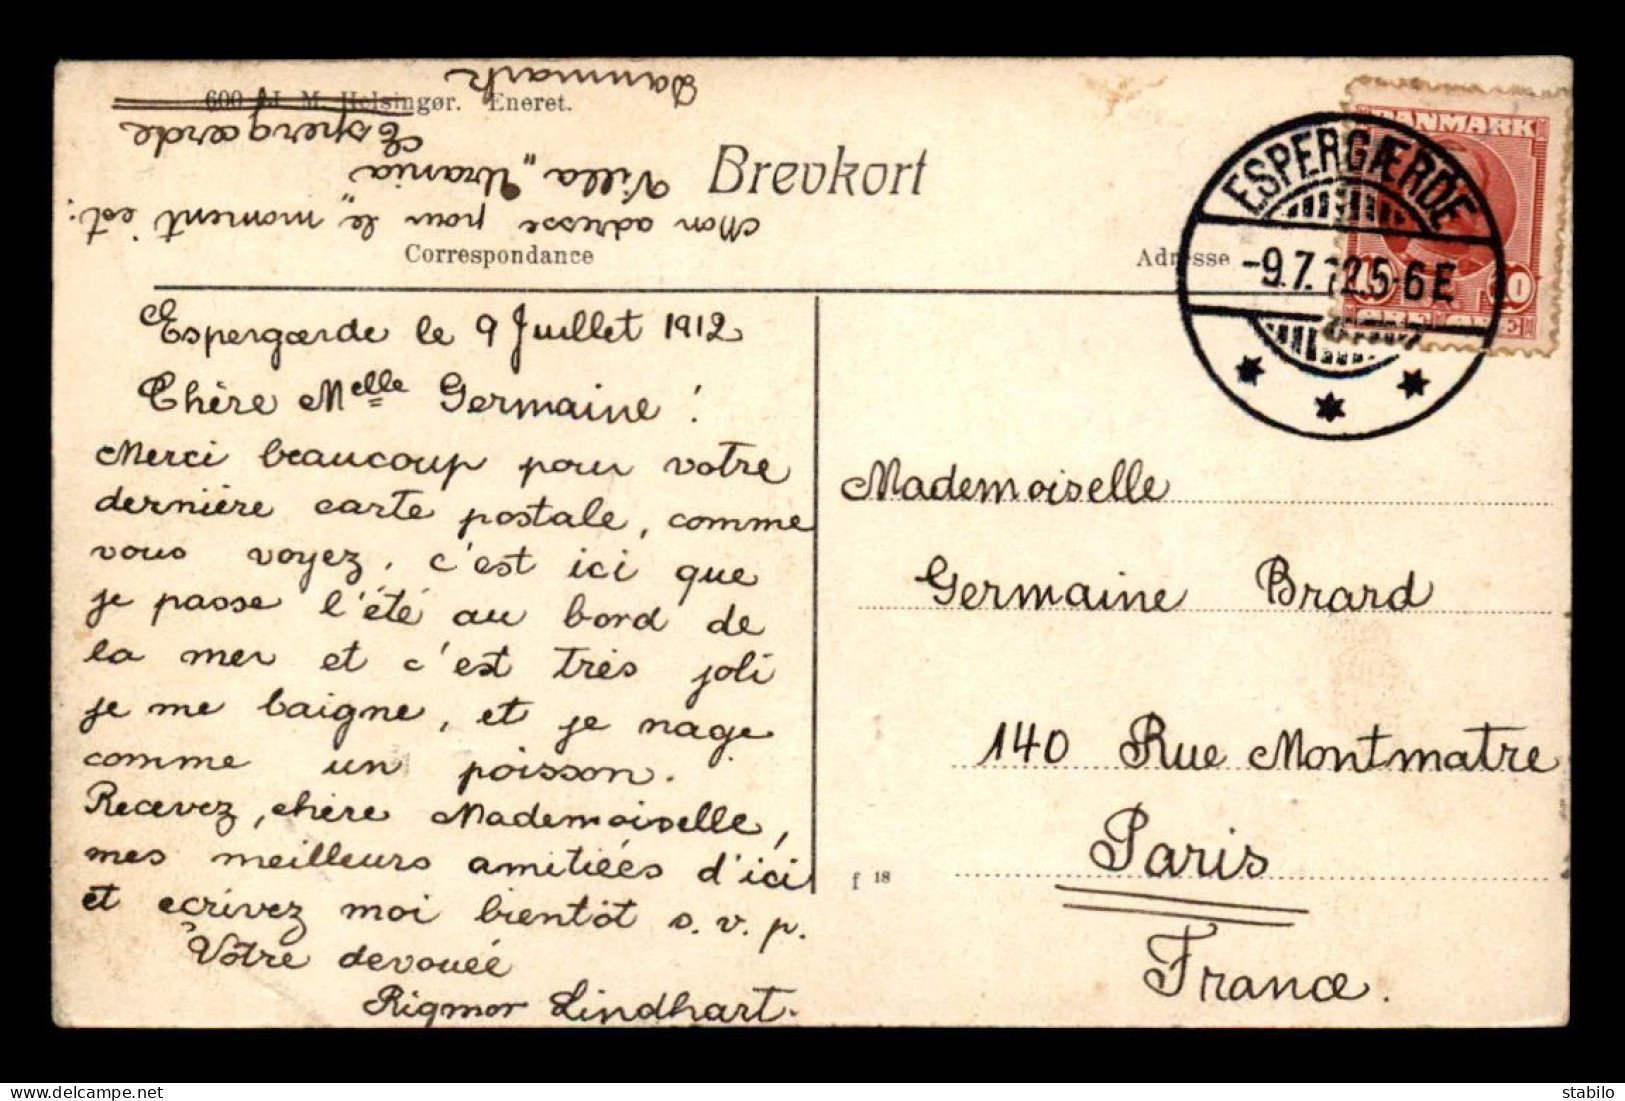 600 M. Helsingør. Eneret.
Brevkort
Correspondance
Adresse
Mon adresse pour le „moment est:
Villa „Urania"
Espergærde
Danmark
DANMARK
10
ESPERGÆRDE
-9.7.12.5-6E
Espergærde le 9 Juillet 1912
Chère Melle Germaine!
Merci beaucoup pour votre
dernière carte postale, comme
vous voyez, c'est ici que
je passe l'été au bord de
la mer et c'est très joli
je me baigne, et je nage
comme un poisson.
Recevez, chère Mademoiselle,
mes meilleurs amitiées d'ici
et ecrivez moi bientôt s.v.p.
Votre devouée
Rigmor Lindhart.
Mademoiselle
Germaine Brard
140 Rue Montmatre
Paris
France.
f 18
stabilo